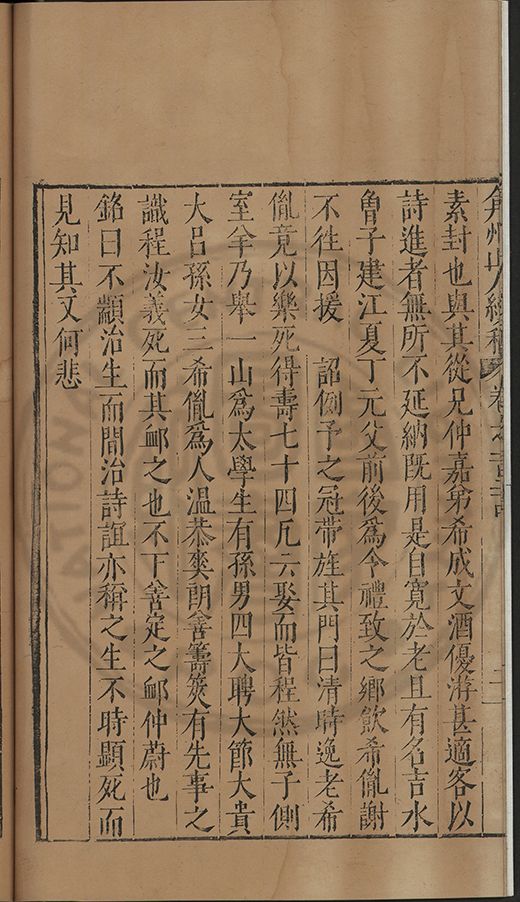 弇州山人續稿 卷之一百
素封也與其從兄仲嘉弟希成文酒優游甚適客以
詩進者無所不延納既用是自寬於老且有名吉水
曾子建江夏丁元父前後為令禮致之鄉飲希胤謝
不徃因援 詔例予之冠帶旌其門曰清時逸老希
胤竟以樂死得壽七十四凡六娶而皆程然無子側
室牟乃舉一山爲太學生有孫男四大聘大節大貴
大呂孫女三希胤爲人溫恭爽朗善籌筴有先事之
識程汝義死而其衈之也不下善定之衈仲蔚也
銘曰不顓治生而間治詩誼亦稱之生不時顯死而
見知其又何悲